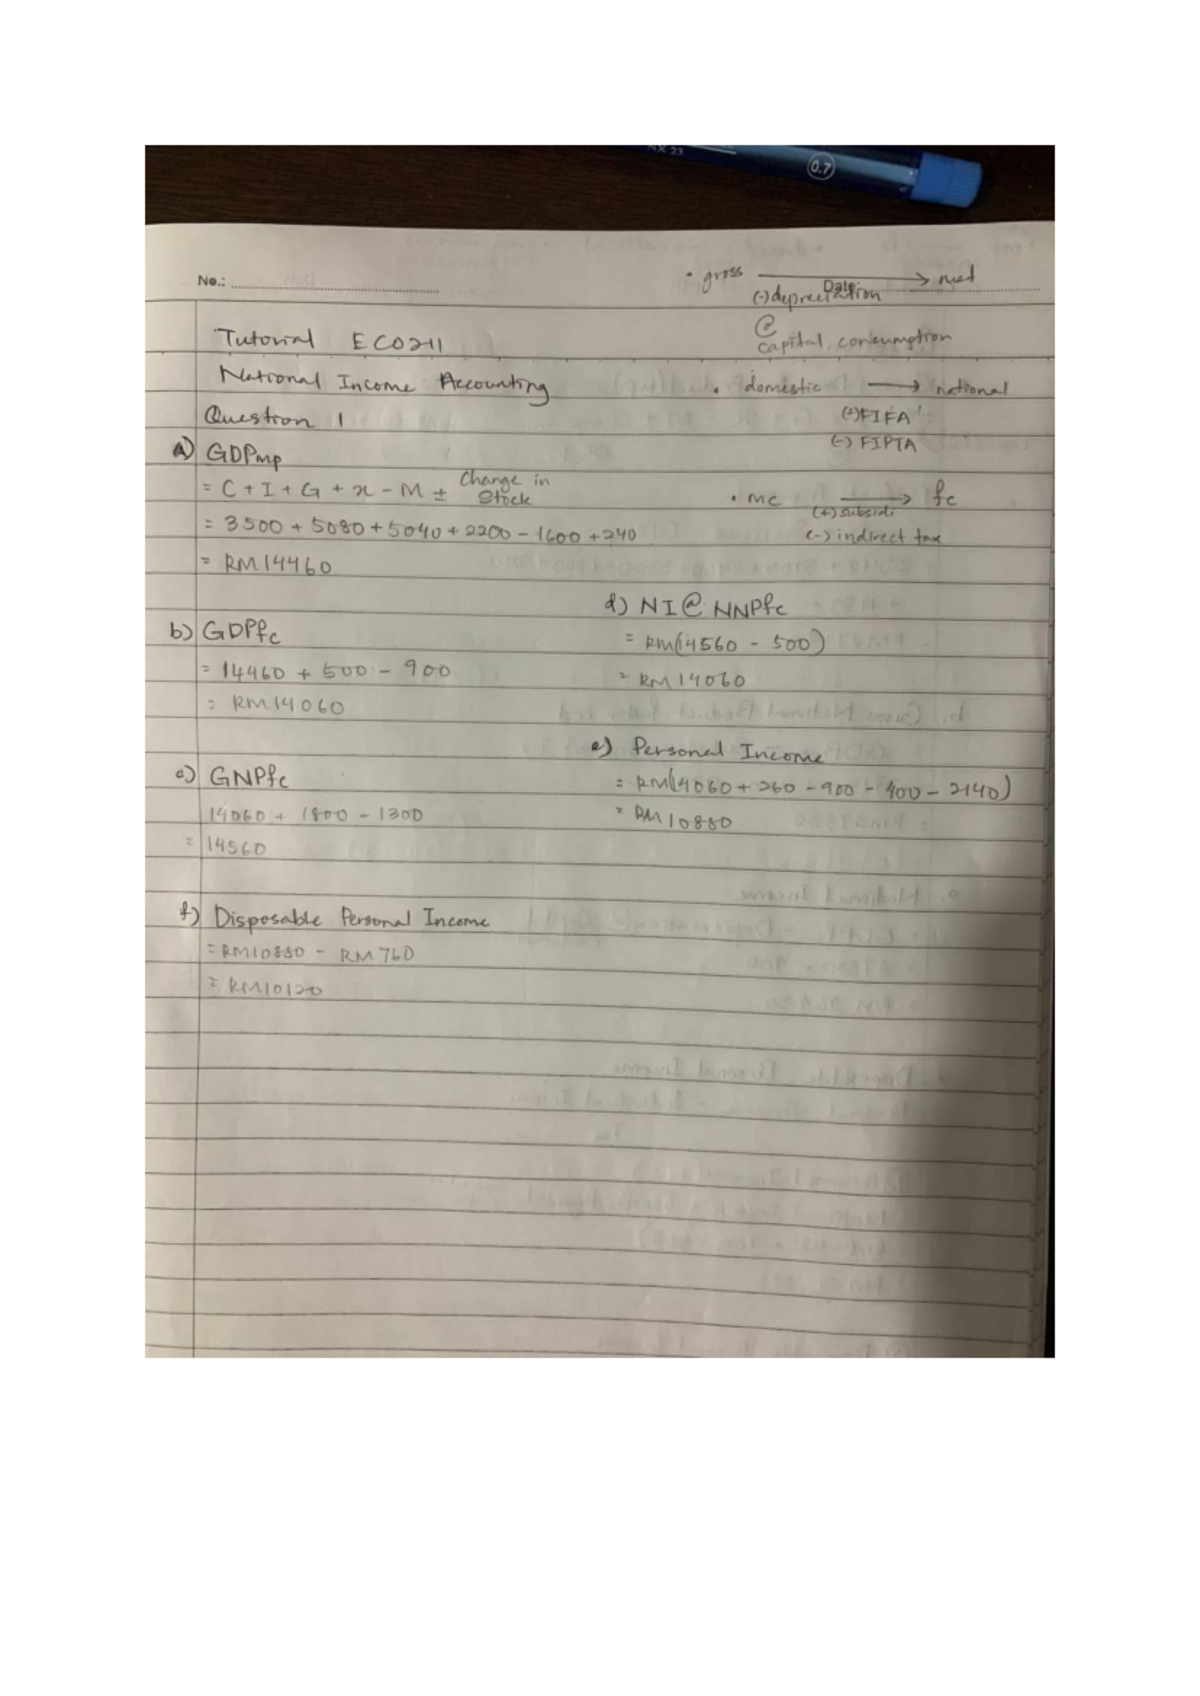 NX 23
0.7
No.:
Date:
• gross → ned
(-) depreciation
@
capital consumption
Tutorial ECO211
National Income Accounting
• domestic → national
Question 1
(+) FIFA
(-) FIPTA
a) GDPmp
= C + I + G + x - M ± Change in Stock
• mc → fc
(+) subsidi
= 3500 + 5080 + 5040 + 2200 - 1600 + 240
(-) indirect tax
= RM14460
b) GDPfc
= 14460 + 500 - 900
= RM14060
c) GNPfc
14060 + 1800 - 1300
= 14560
d) NI @ NNPfc
= RM(14560 - 500)
= RM14060
e) Personal Income
= RM(14060 + 260 - 900 - 400 - 2140)
= RM10880
f) Disposable Personal Income
= RM10880 - RM760
= RM10120